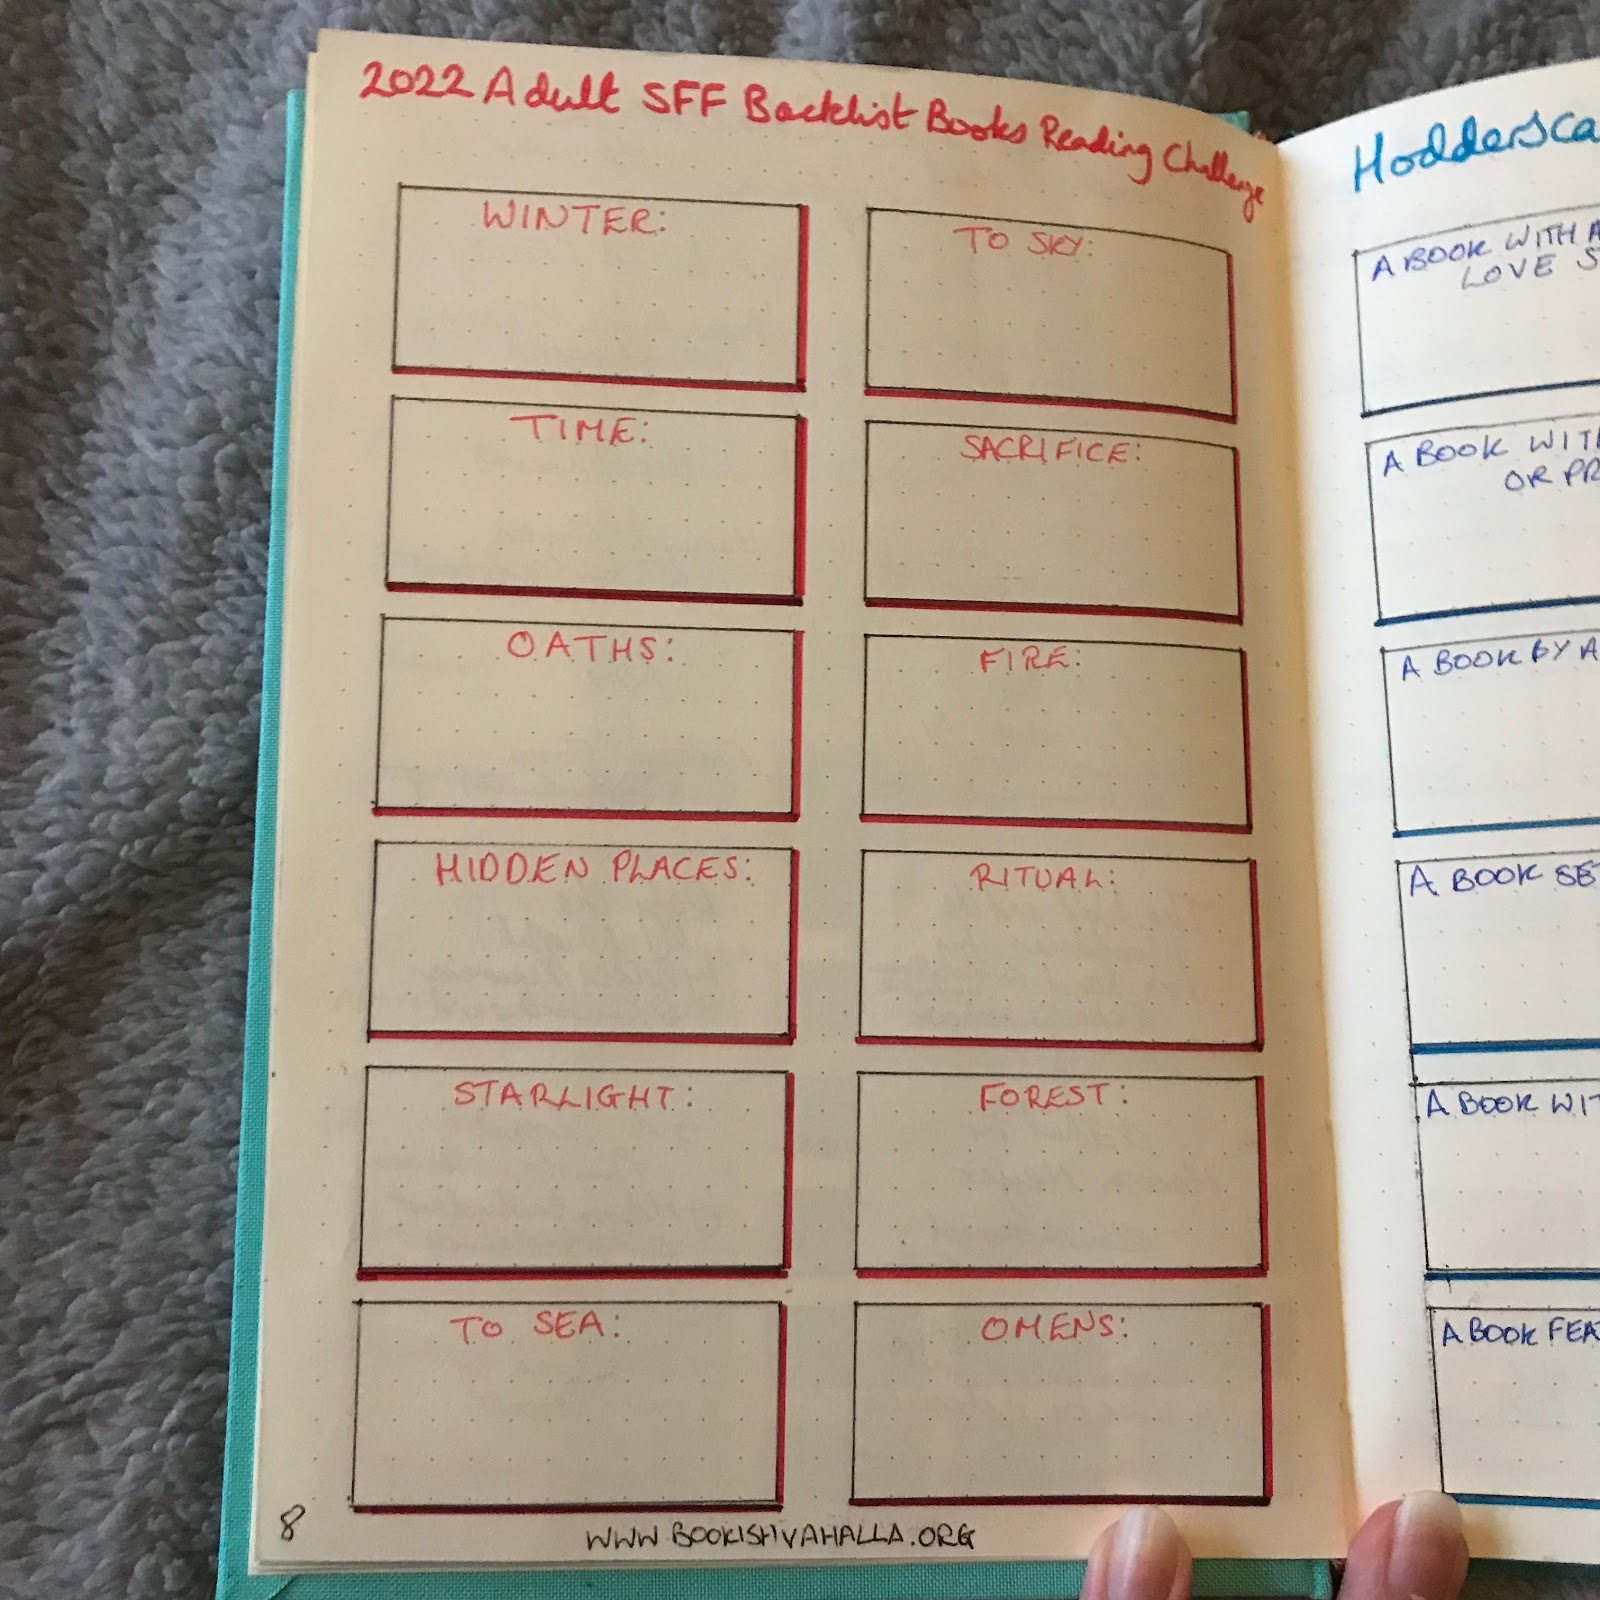 2022 Adult SFF Backlist Books Reading Challenge
WINTER:
TO SKY:
TIME:
SACRIFICE:
OATHS:
FIRE:
HIDDEN PLACES:
RITUAL:
STARLIGHT:
FOREST:
TO SEA:
OMENS:
8
WWW.BOOKISHVAHALLA.ORG
A BOOK WITH A
LOVE
A BOOK
OR
A BOOK BY A
A BOOK
A BOOK
A BOOK